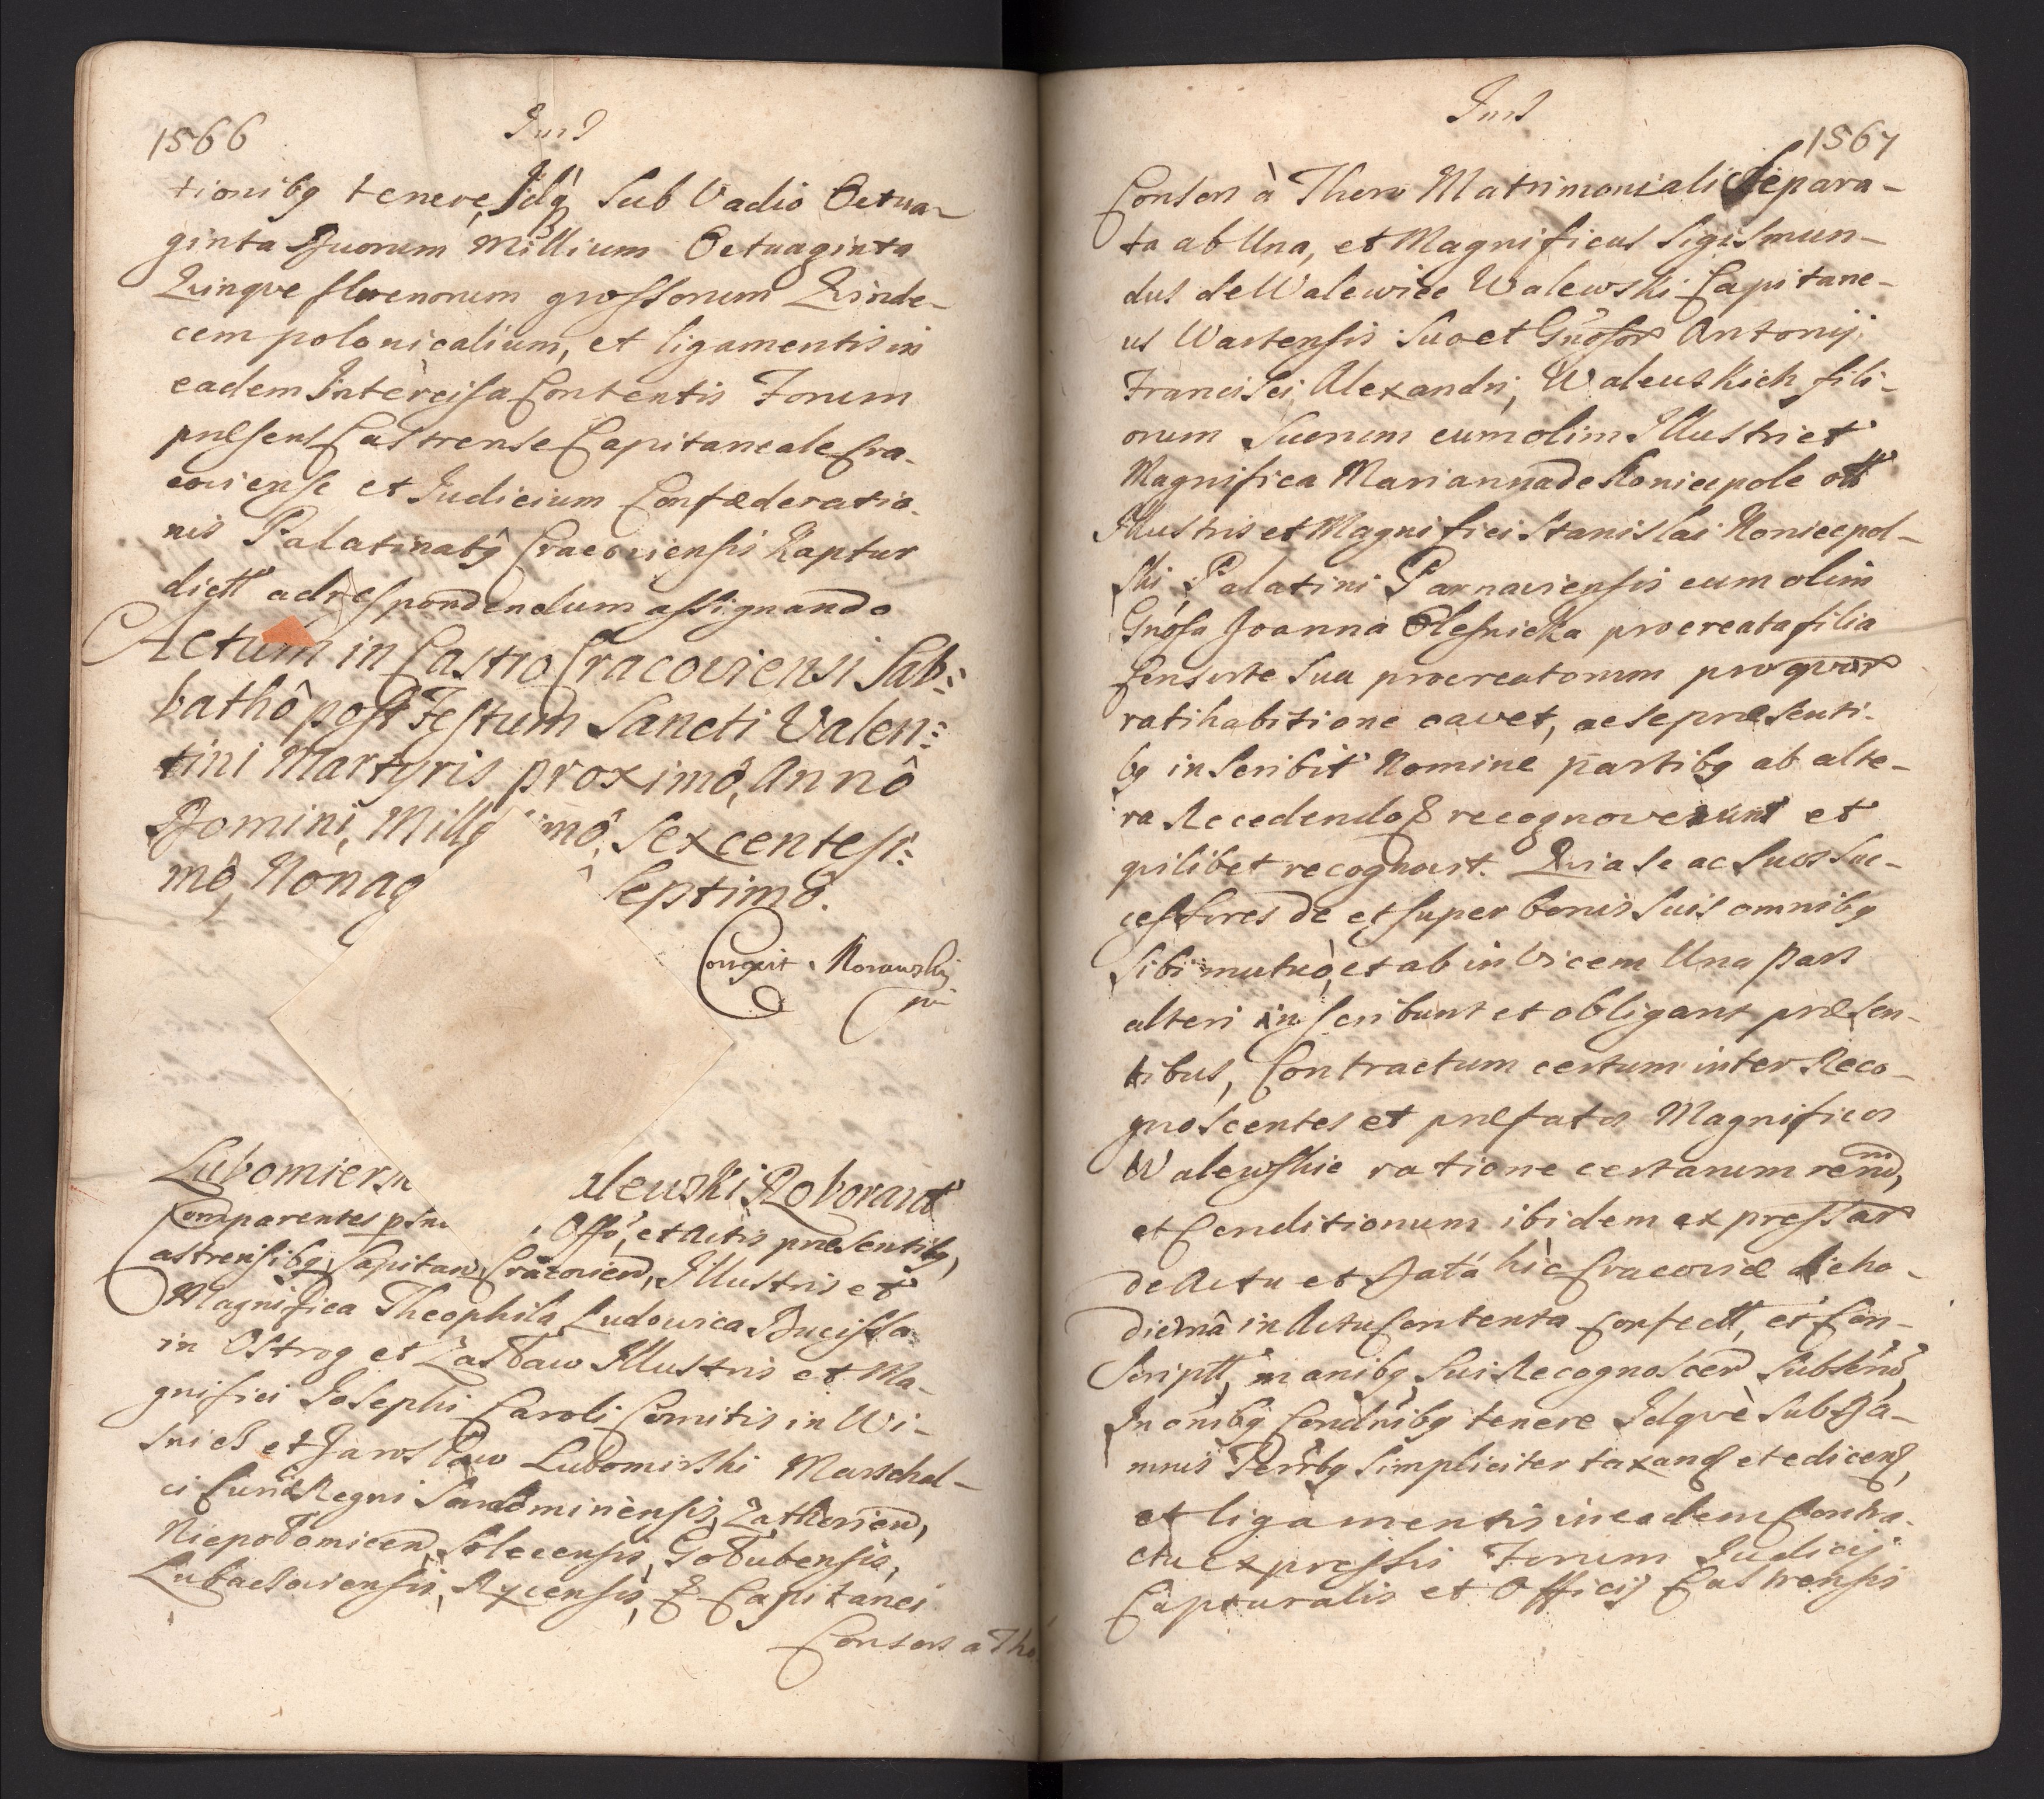 1566
Ind
tionibq tenere, Idq Sub Vadio Octua-
ginta Duorum Millium Octuaginta
Quinque florenorum grossorum Quinde-
cem polonicalium, et ligamentis in
eadem Intercisa Contentis Forum
præsens Castrense Capitaneale Cra-
coviense et Iudicium Confæderatio-
nis Palatinatq Cracoviensis Kaptur
dictt ad respondendum assignando
Actum in Castro Cracoviensi Sab:
bathô post Festum Sancti Valen:
tini Martyris proximô, Annô
Domini, Mill imô, Sexcentesi:
mô, Nonag Septimô.
Lubomiers alewski Roborat
Comparentes Offo, et Actis præsentibq,
Castrensibq, Capitan, Cracovien, Illustris et
Magnifica Theophila Ludovica Ducissa
in Ostrog et Zasław Illustris et Ma-
gnifici Josephi Caroli Comitis in Wi-
snicz et Jarosław Lubomirski Marschal-
ci Curiæ Regni Sandominensis, Zathorien,
Niepołomicen, Solecensis, Gołubensis,
Lubaczoviensis, Rycensis, & Capitanei
Consors a Tho
Ind
1567
Consors à Thoro Matrimoniali Separa-
ta ab Una, et Magnificus Sigismun-
dus de Walewice Walewski Capitane-
us Wartensis Suo et Gnosor Antonij
Francisci, Alexandri, Walewskich fili-
orum Suorum cum olim Illustri et
Magnifica Marianna de Koniecpole ott
Illustris et Magnifici Stanislai Koniecpol-
ski Palatini Parnaviensis cum olim
Gnosa Joanna Olesnicka procreata filia
Consorte Sua procreatorum pro quor
ratihabitione cavet, ac se præsenti-
bq inscribit Nomine partibq ab alte-
ra Recedendo & recognoverunt et
quilibet recognovit. Quia Se ac Suos Suc-
cessores de et super bonis Suis omnibq
Sibi mutuò, et ab in Vicem Una pars
alteri inscribunt et obligant præsen-
tibus, Contractum certum inter Reco-
gnoscentes et præfatos Magnificos
Walewskie ratione certarum
et Conditionum ibidem expressar
de Actu et Data hic Cracoviæ die ho-
diernâ in Actu Contenta Confectt, et Con-
scriptt, manibq Sui Recognoscen Subscn,
In omibq Condnibq tenere Idquè Sub Da-
mnis Terrbq Simpliciter taxand et edicend,
et ligamentis in eadem Contra-
ctu expressis Forum Iudicij
Capturalis et Officij Castrensis